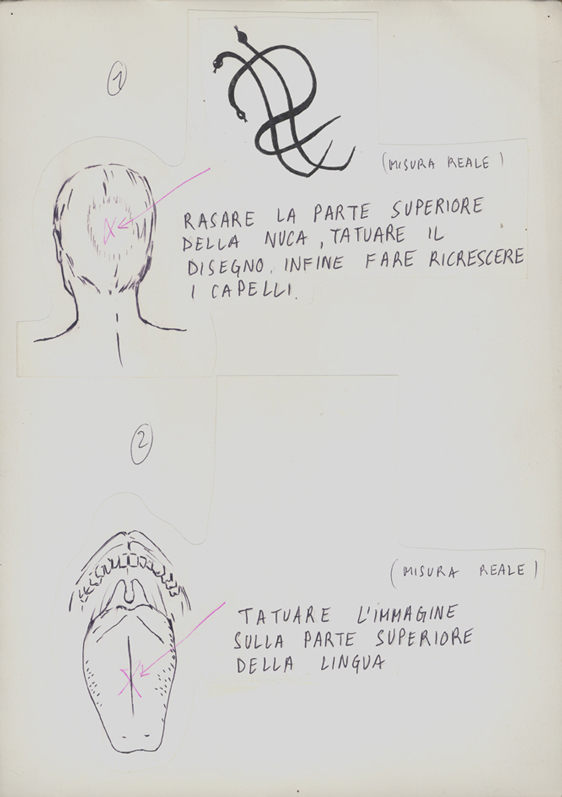 1
(MISURA REALE)
RASARE LA PARTE SUPERIORE
DELLA NUCA, TATUARE IL
DISEGNO. INFINE FARE RICRESCERE
I CAPELLI.
2
(MISURA REALE)
TATUARE L'IMMAGINE
SULLA PARTE SUPERIORE
DELLA LINGUA